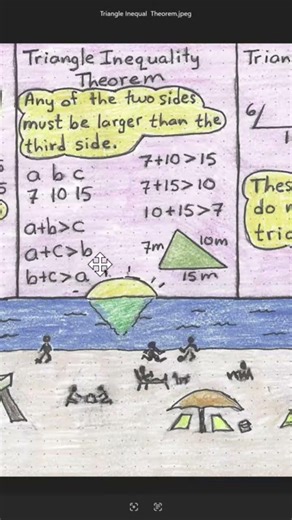 Triangle Inequal Theorem.jpeg
Triangle Inequality
Theorem
Any of the two sides
must be larger than the
third side.
a b c
7 10 15
a+b>c
a+c>b
b+c>a
7+10>15
7+15>10
10+15>7
7m
10m
15m
Trian
6
1
Thes
do n
tric
5
5